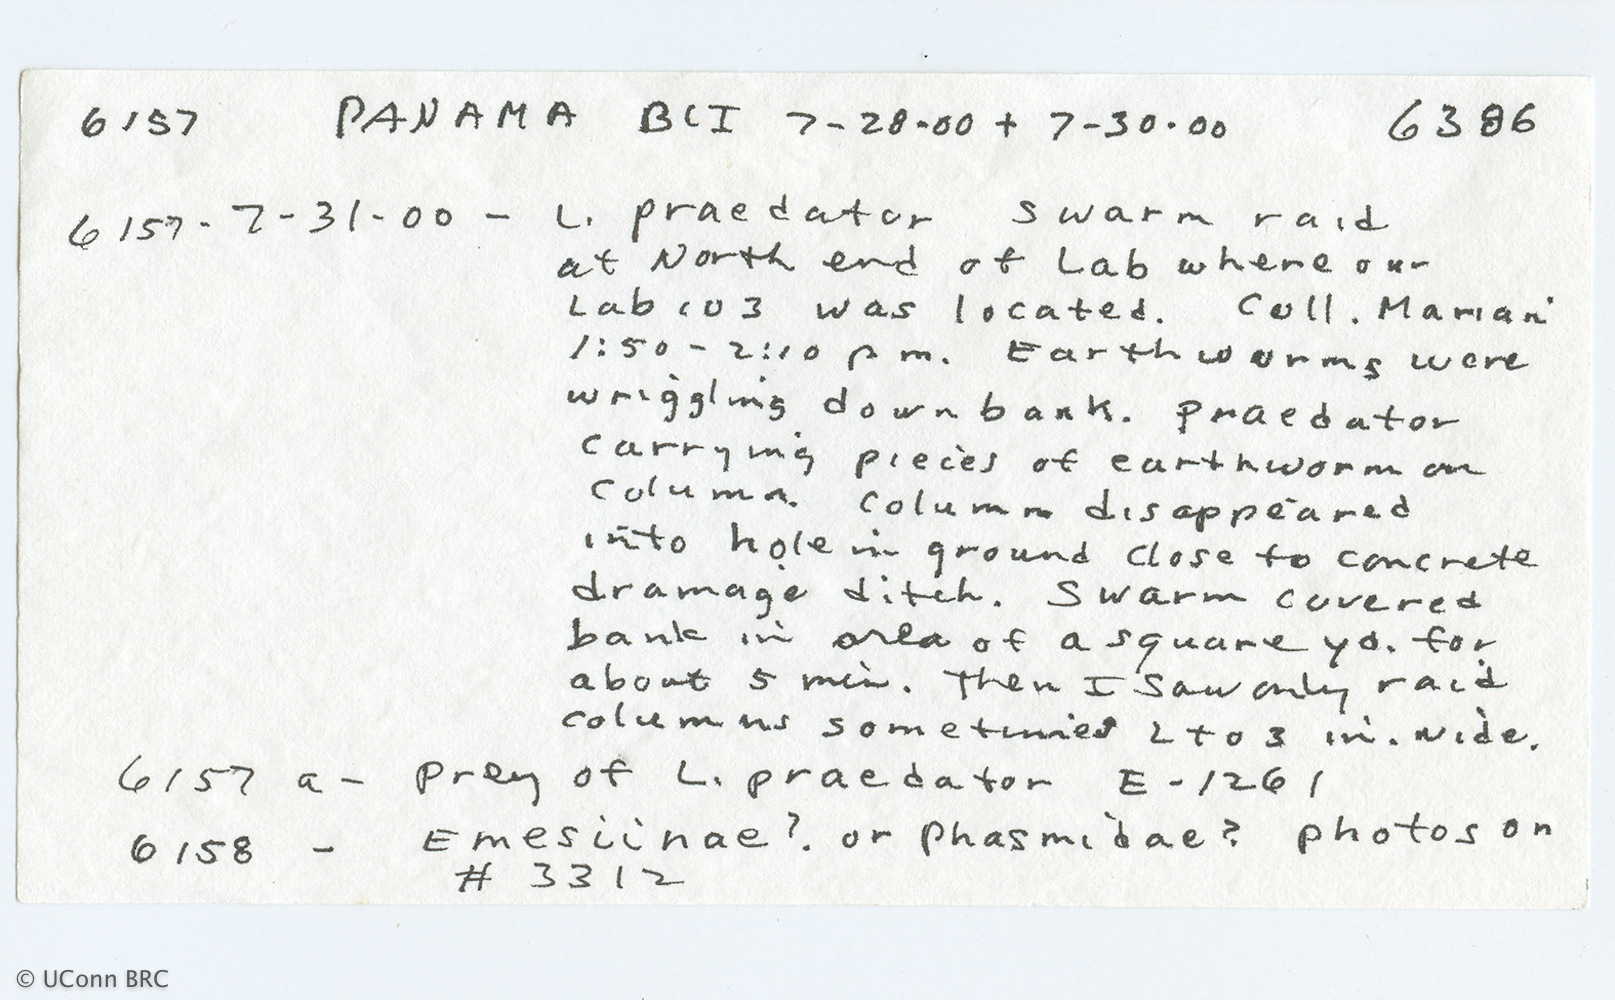 6157 PANAMA BCI 7-28-00 + 7-30-00 6386
6157-7-31-00 - L. praedator swarm raid
at North end of Lab where our
Lab 103 was located. Coll. Marian
1:50-2:10 pm. Earthworms were
wriggling down bank. praedator
carrying pieces of earthworm on
column. Column disappeared
into hole in ground close to concrete
drainage ditch. Swarm covered
bank in area of a square yd. for
about 5 min. Then I saw only raid
columns sometimes 2 to 3 in. wide.
6157 a - prey of L. praedator E-1261
6158 - Emesiinae?. or Phasmidae? photos on
# 3312
© UConn BRC